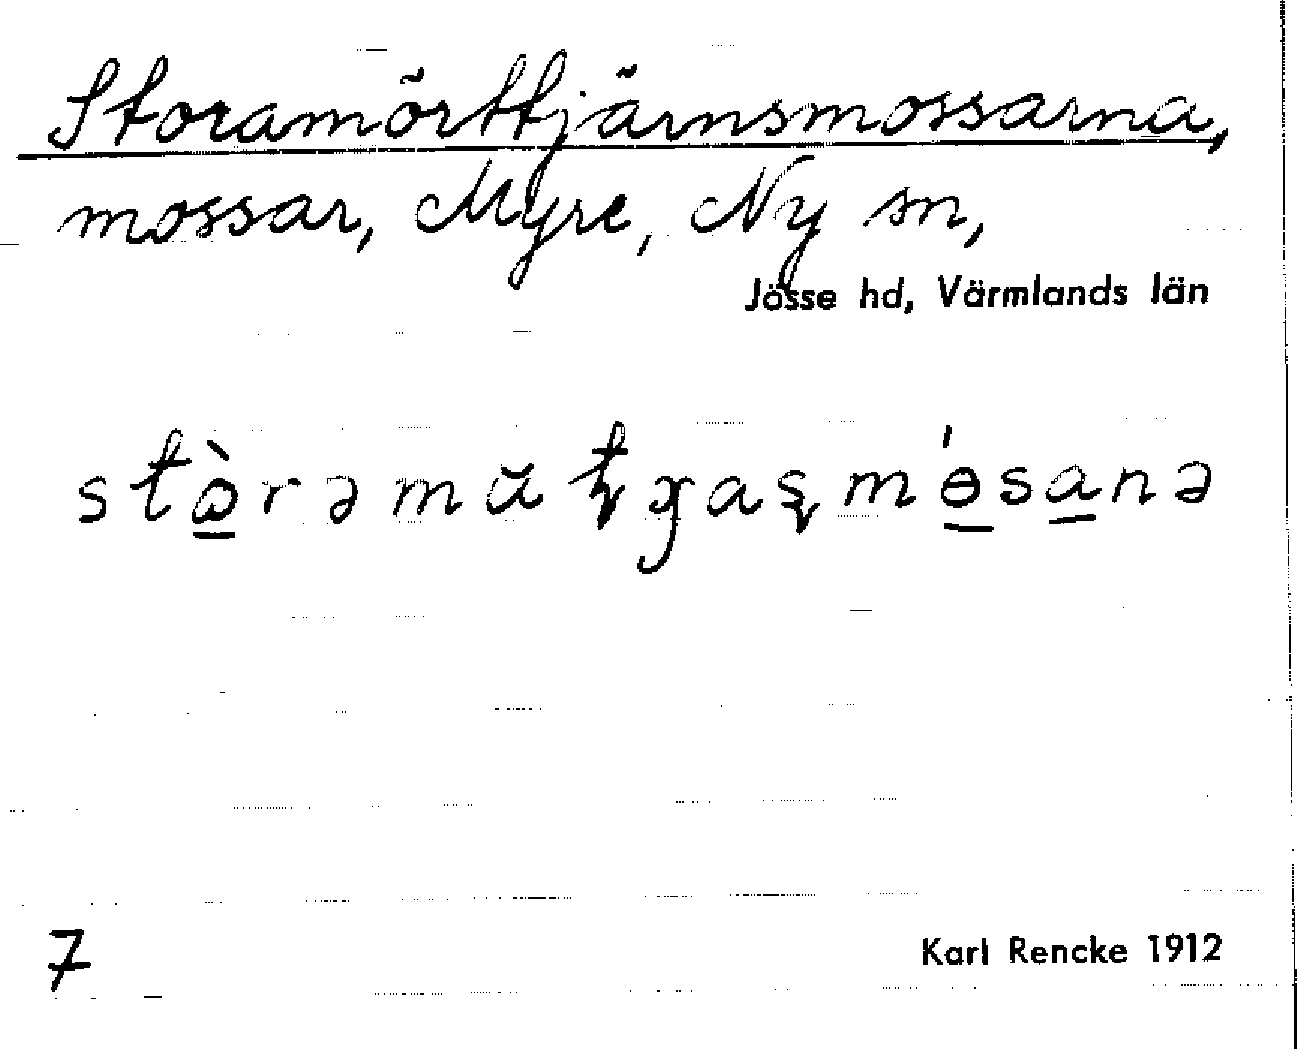 Storamörttjärnsmossarna,
mossar, Myre, Ny sn,
Jösse hd, Värmlands län
7
Karl Rencke 1912